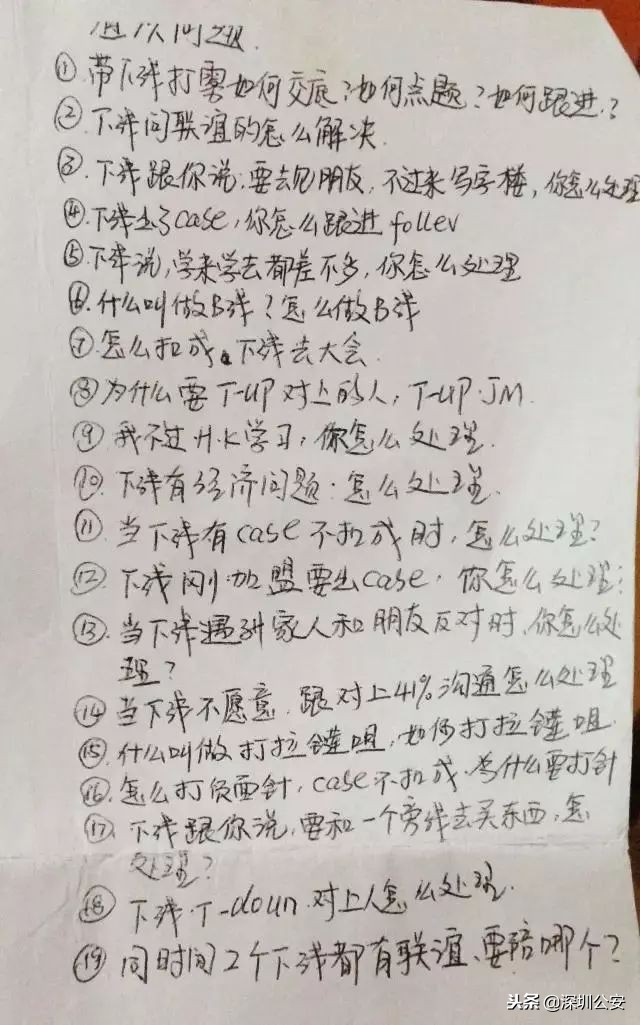 问题
① 带下线打雾如何交底?如何点题?如何跟进?
② 下线问联谊的怎么解决
③ 下线跟你说,要去见朋友,不过来写字楼,你怎么处理
④ 下线出了case,你怎么跟进 follev
⑤ 下线说,学来学去都差不多,你怎么处理
⑥ 什么叫做B线?怎么做B线
⑦ 怎么扣成 下线去大会
⑧ 为什么要T-UP对上的人,T-UP.JM
⑨ 我不过H.K学习,你怎么处理
⑩ 下线有经济问题:怎么处理
⑪ 当下线有case不扣成时,怎么处理?
⑫ 下线刚加盟要出case,你怎么处理?
⑬ 当下线遇到家人和朋友反对时,你怎么处
理?
⑭ 当下线不愿意,跟对上41%沟通怎么处理
⑮ 什么叫做打拉链咀,如何打拉链咀
⑯ 怎么打负面针,case不扣成,为什么要打针
⑰ 下线跟你说,要和一个旁线去买东西,怎
处理?
⑱ 下线.T-doun.对上人怎么处理.
⑲ 同时间2个下线都有联谊、要陪哪个?
头条@深圳公安